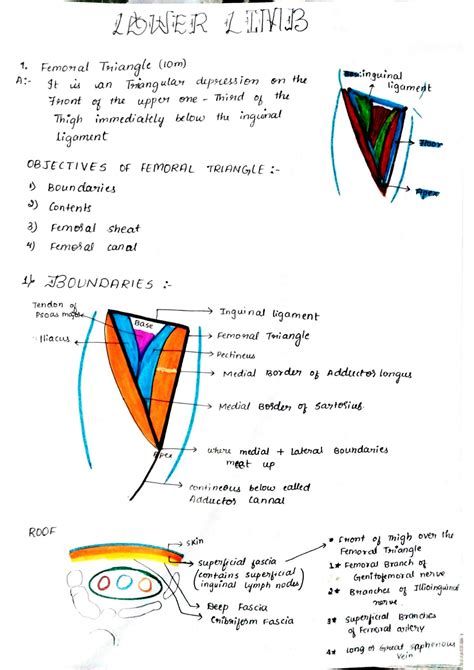 LOWER LIMB
1. Femoral Triangle (10m)
A:- It is an Triangular depression on the
Front of the upper one-Third of the
Thigh immediately below the inguinal
Ligament
inguinal
ligament
Floor
Apex
OBJECTIVES OF FEMORAL TRIANGLE :-
1) Boundaries
2) Contents
3) Femoral sheat
4) Femoral canal
1) BOUNDARIES :-
Tendon of
Psoas major
Iliacus
Base
Inguinal ligament
Femoral Triangle
Pectineus
Medial Border of Adductor longus
Medial Border of Sartorius
Apex
where medial + lateral Boundaries
meet up
contineous below called
Adductor cannal
ROOF
Skin
superficial fascia
(contains superficial
inguinal lymph nodes)
Deep Fascia
Cribriform Fascia
* Front of thigh over the
Femoral Triangle
1* Femoral Branch of
Genitofemoral nerve
2* Branches of Illioinguinal
nerve
3* Superficial Branches
of Femoral artery
4* long or Great saphenous
Vein